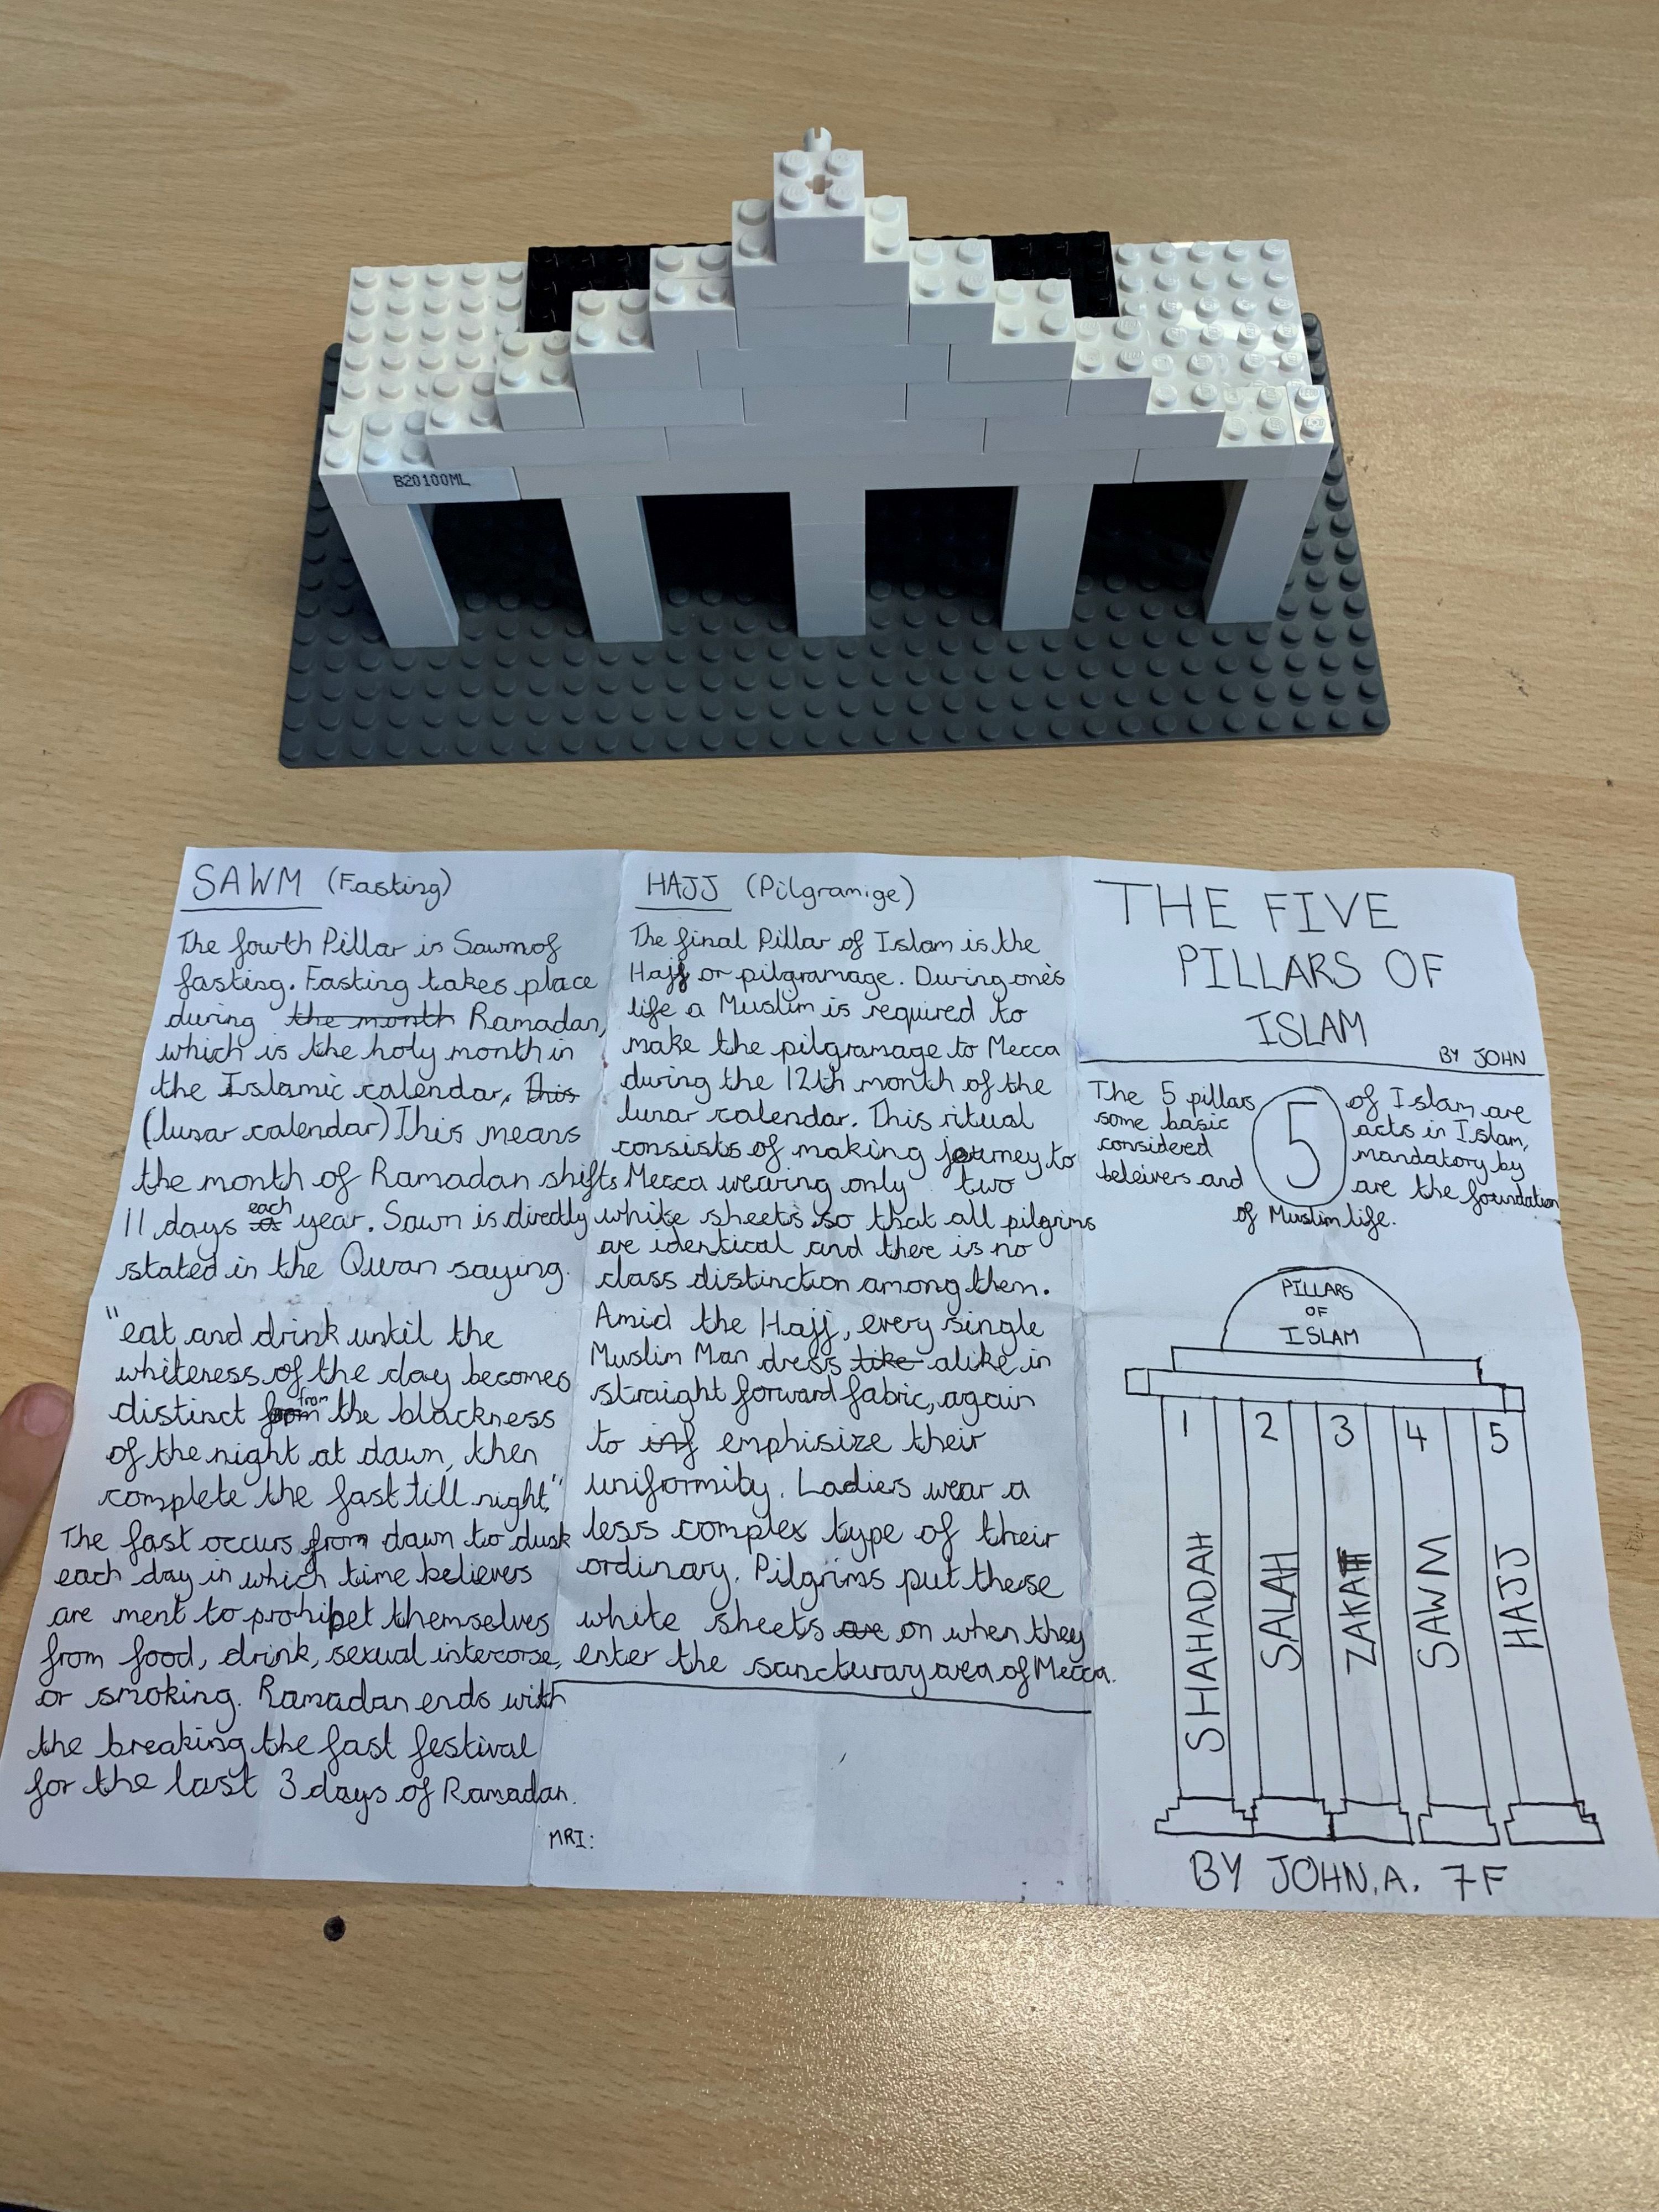 B20100ML
SAWM (Fasting)
The fourth Pillar is Sawm of
fasting. Fasting takes place
during the month Ramadan,
which is the holy month in
the Islamic calendar, This
(lunar calendar) This means
the month of Ramadan shifts
11 days each year. Sawn is directly
stated in the Quran saying.
"eat and drink until the
whiteness of the day becomes
distinct from the blackness
of the night at dawn, then
complete the fast till night,"
The fast occurs from dawn to dusk
each day in which time believers
are ment to prohibet themselves
from food, drink, sexual intercorse,
or smoking. Ramadan ends with
the breaking the fast festival
for the last 3 days of Ramadan.
HAJJ (Pilgramige)
The final Pillar of Islam is the
Hajj or pilgramage. During one's
life a Muslim is required to
make the pilgramage to Mecca
during the 12th month of the
lunar calendar. This ritual
consists of making journey to
Mecca wearing only two
white sheets so that all pilgrims
are identical and there is no
class distinction among them.
Amid the Hajj, every single
Muslim Man dress like alike in
straight forward fabric, again
to inf emphisize their
uniformity. Ladies wear a
less complex type of their
ordinary. Pilgrims put these
white sheets are on when they
enter the sancturary area of Mecca.
MRI:
THE FIVE
PILLARS OF
ISLAM
BY JOHN
The 5 pillars of Islam are
some basic acts in Islam,
considered 5 mandatory by
beleivers and are the foundation
of Muslim life.
PILLARS
OF
ISLAM
1 2 3 4 5
SHAHADAH
SALAH
ZAKAH
SAWM
HAJJ
BY JOHN.A. 7F